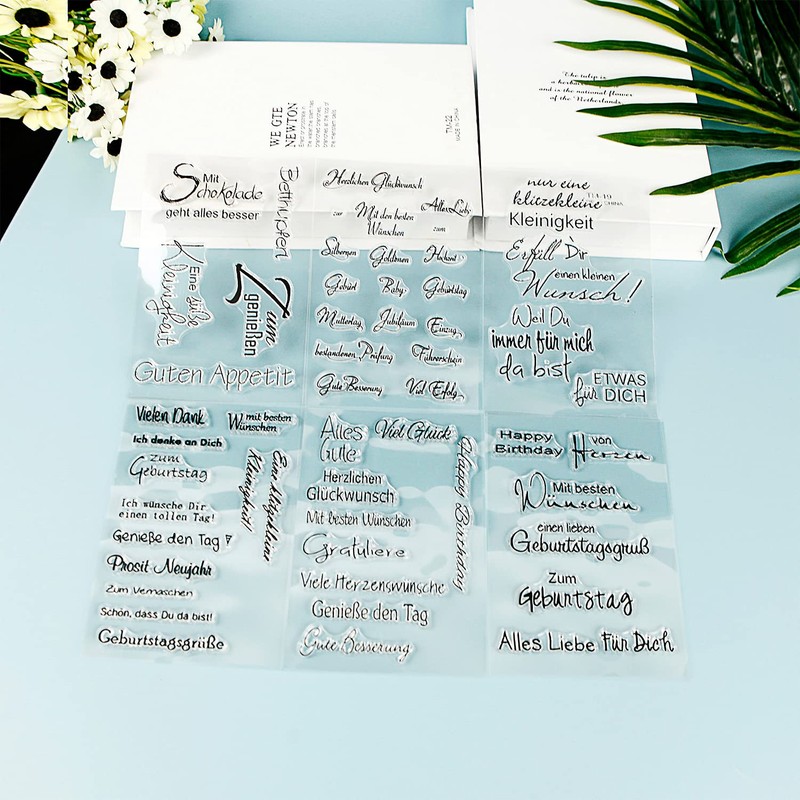 The tulip is
a herbaceous
and is the national flower
of the Netherlands.
WE GTE
NEWTON
TM-22
MADE IN CHINA
Mit
Schokolade
geht alles besser
Betthupferl
Eine süße
Kleinigkeit
Zum
genießen
Guten Appetit
Herzlichen Glückwunsch
Alles Liebe
zur
Mit den besten
Wünschen
zum
Silbernen
Goldenen
Hochzeit
Geburt
Baby
Geburtstag
Muttertag
Jubiläum
Einzug
bestandenen Prüfung
Führerschein
Gute Besserung
Viel Erfolg
nur eine
klitzekleine
TM-19
CHINA
Kleinigkeit
Erfüll Dir
einen kleinen
Wunsch!
Weil Du
immer für mich
da bist
ETWAS
für DICH
Vielen Dank
mit besten
Wünschen
Ich denke an Dich
zum
Geburtstag
Eine klitzekleine
Kleinigkeit!
Ich wünsche Dir
einen tollen Tag!
Genieße den Tag
Prosit Neujahr
Zum Vernaschen
Schön, dass Du da bist!
Geburtstagsgrüße
Alles
Gute
Viel Glück
Happy Birthday
Herzlichen
Glückwunsch
Mit besten Wünschen
Gratuliere
Viele Herzenswünsche
Genieße den Tag
Gute Besserung
Happy
Birthday
von
Herzen
Mit besten
Wünschen
einen lieben
Geburtstagsgruß
Zum
Geburtstag
Alles Liebe Für Dich